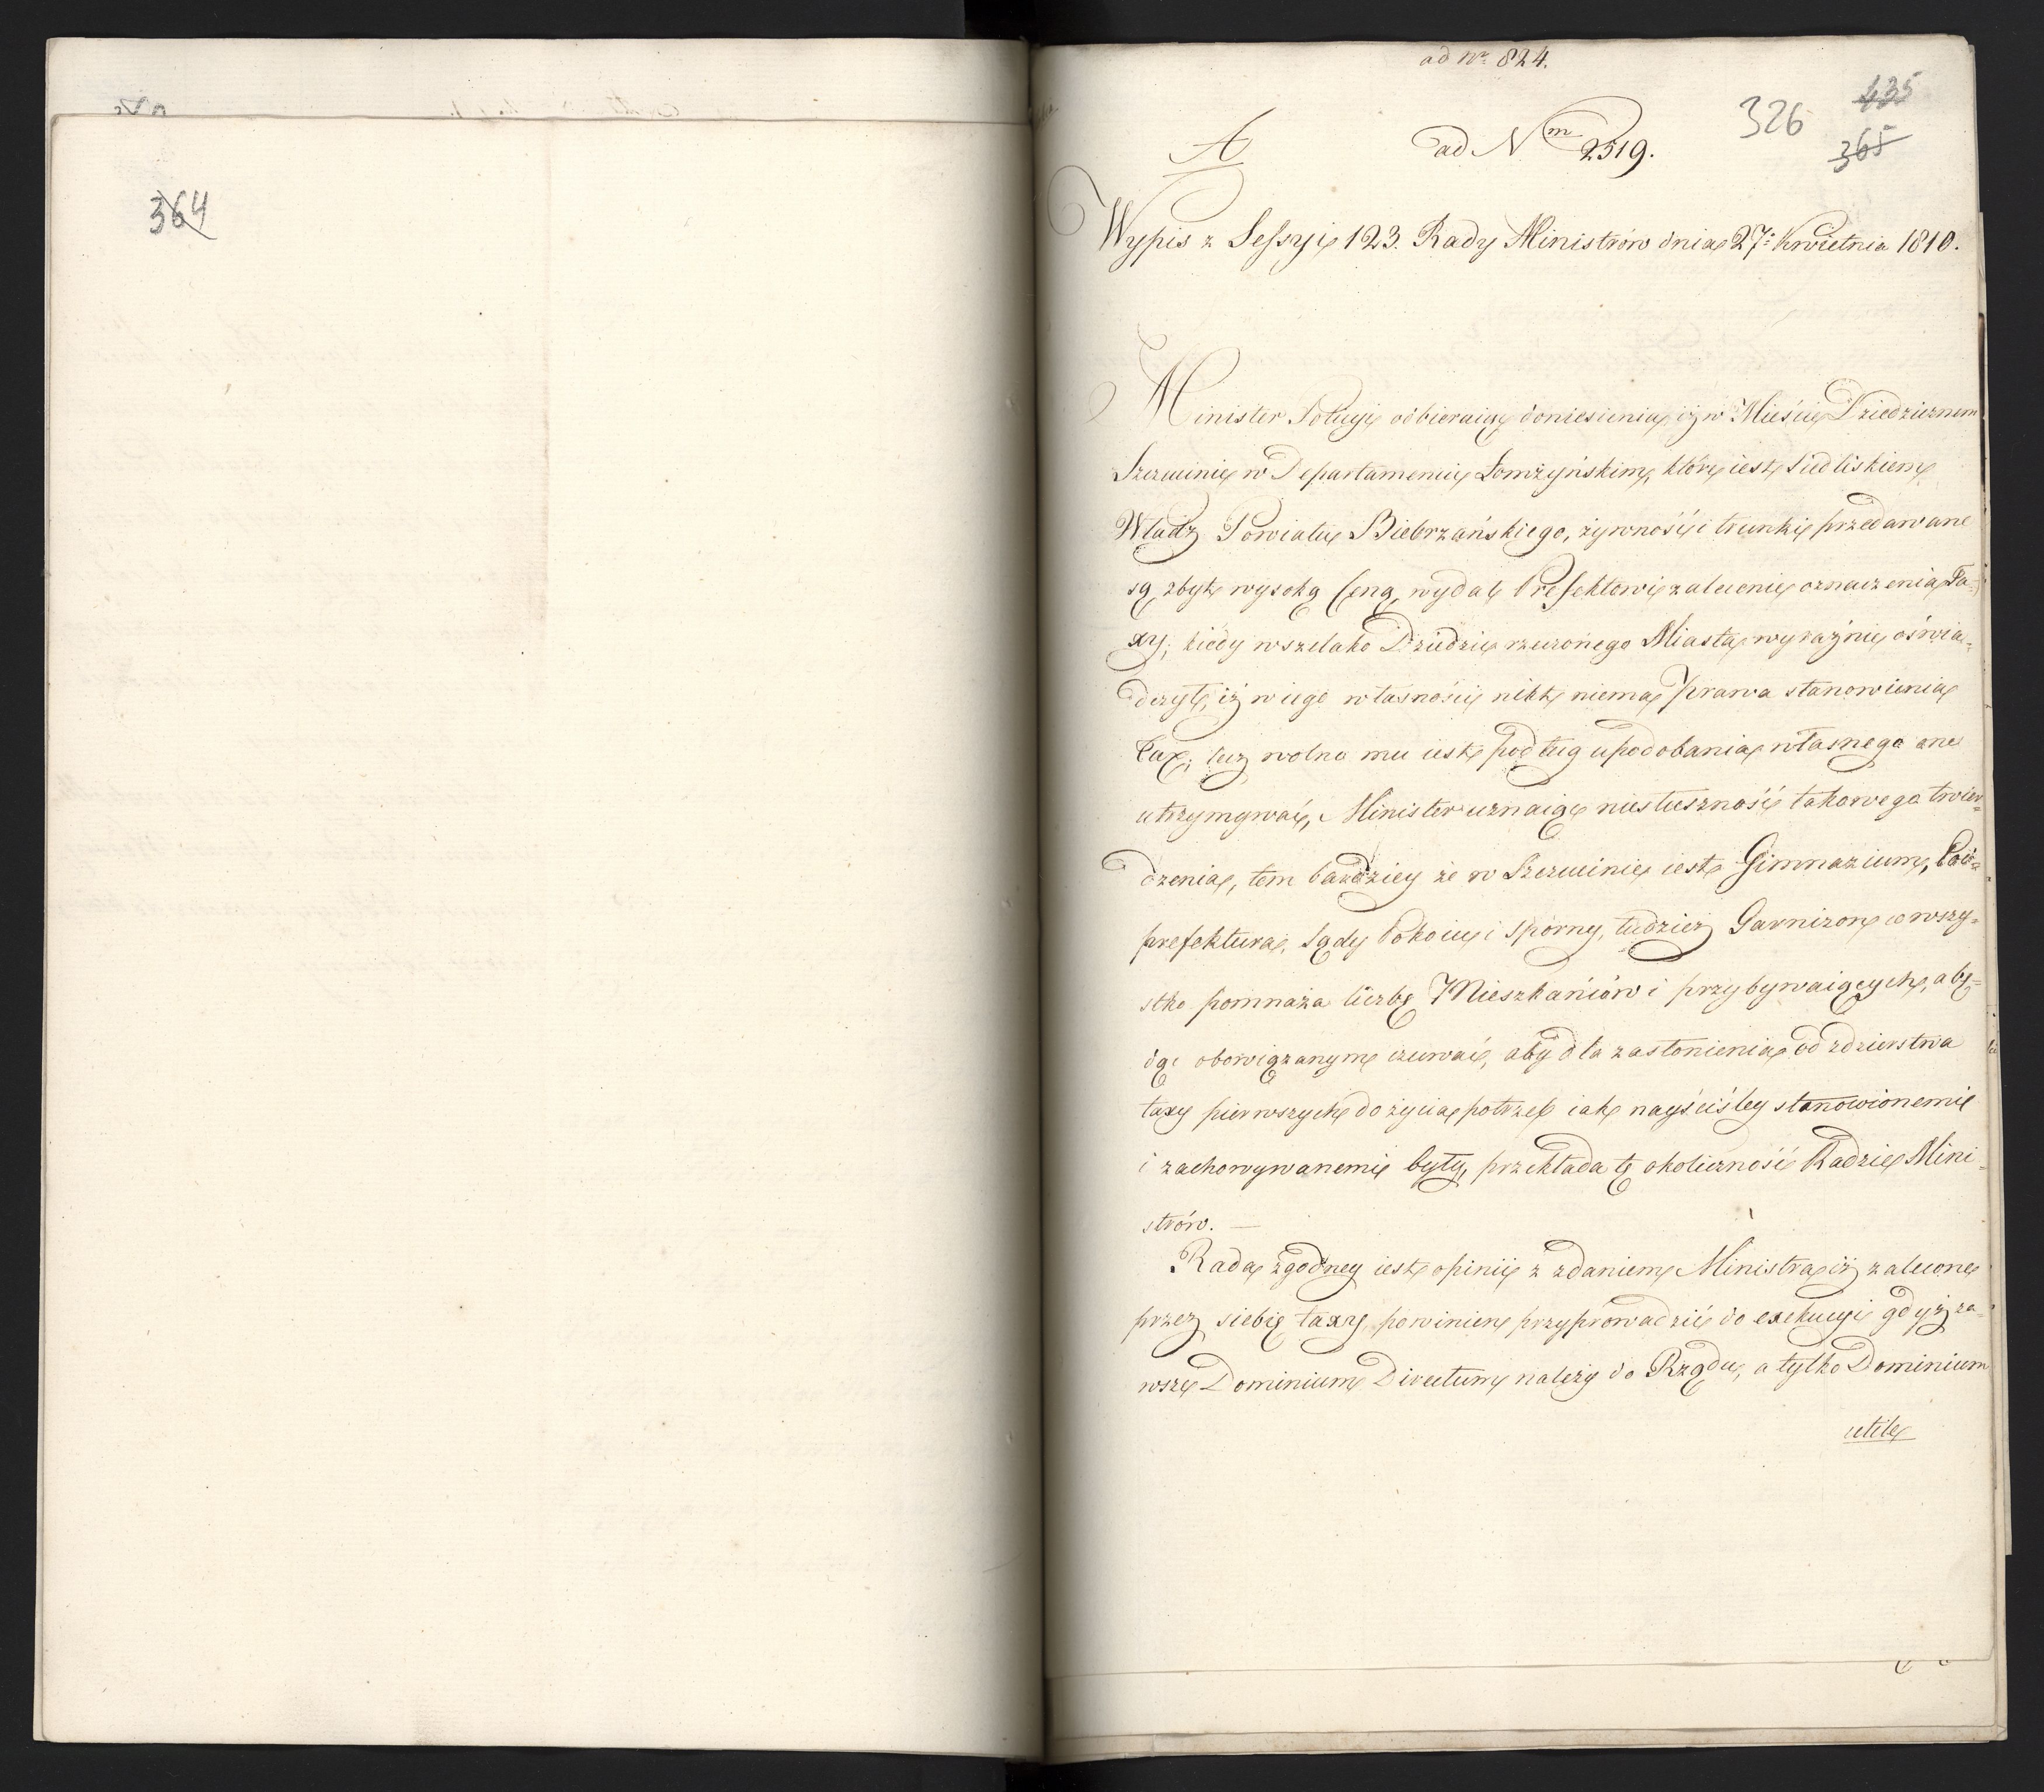 364
ad Nr 824.
326
435
365
A
ad Nm 2519.
Wypis z Sessyi 123. Rady Ministrów dnia 27: Kwietnia 1810.
Minister Policyi odbieraiąc doniesienia, iż w Mieście Dziedzicznem
Szczucinie w Departamencie Łomżyńskim, które iest siedliskiem
Władz Powiatu Biebrzańskiego, żywność i trunki przedawane
są zbyt wysoką Ceną, wydał Prefektowi zalecenie oznaczenia Ta-
xy; kiedy wszelako Dziedzic rzeczonego Miasta wyraźnie oświa-
dczył, iż w iego własności nikt niema prawa stanowienia
Tax; lecz wolno mu iest podług upodobania własnego one
utrzymywać, Minister uznaiąc niesłuszność takowego twier-
dzenia, tem bardziey że w Szczucinie iest Gimnazium, Pod-
prefektura, Sądy Pokoiu i Sporny, tudzież Garnizon co wszy-
stko pomnaża liczbę Mieszkańców i przybywaiących, a bę-
dąc obowiązanym czuwać, aby dla zasłonienia od zdzierstwa
taxy pierwszych do życia potrzeb iak nayściśley stanowionemi
i zachowywanemi były, przekłada tę okoliczność Radzie Mini-
strów. —
Rada zgodney iest opinii z zdaniem Ministra iż zalecone
przez siebie taxy powinien przyprowadzić do exekucyi gdyż za-
wsze Dominium Directum należy do Rządu, a tylko Dominium
utile